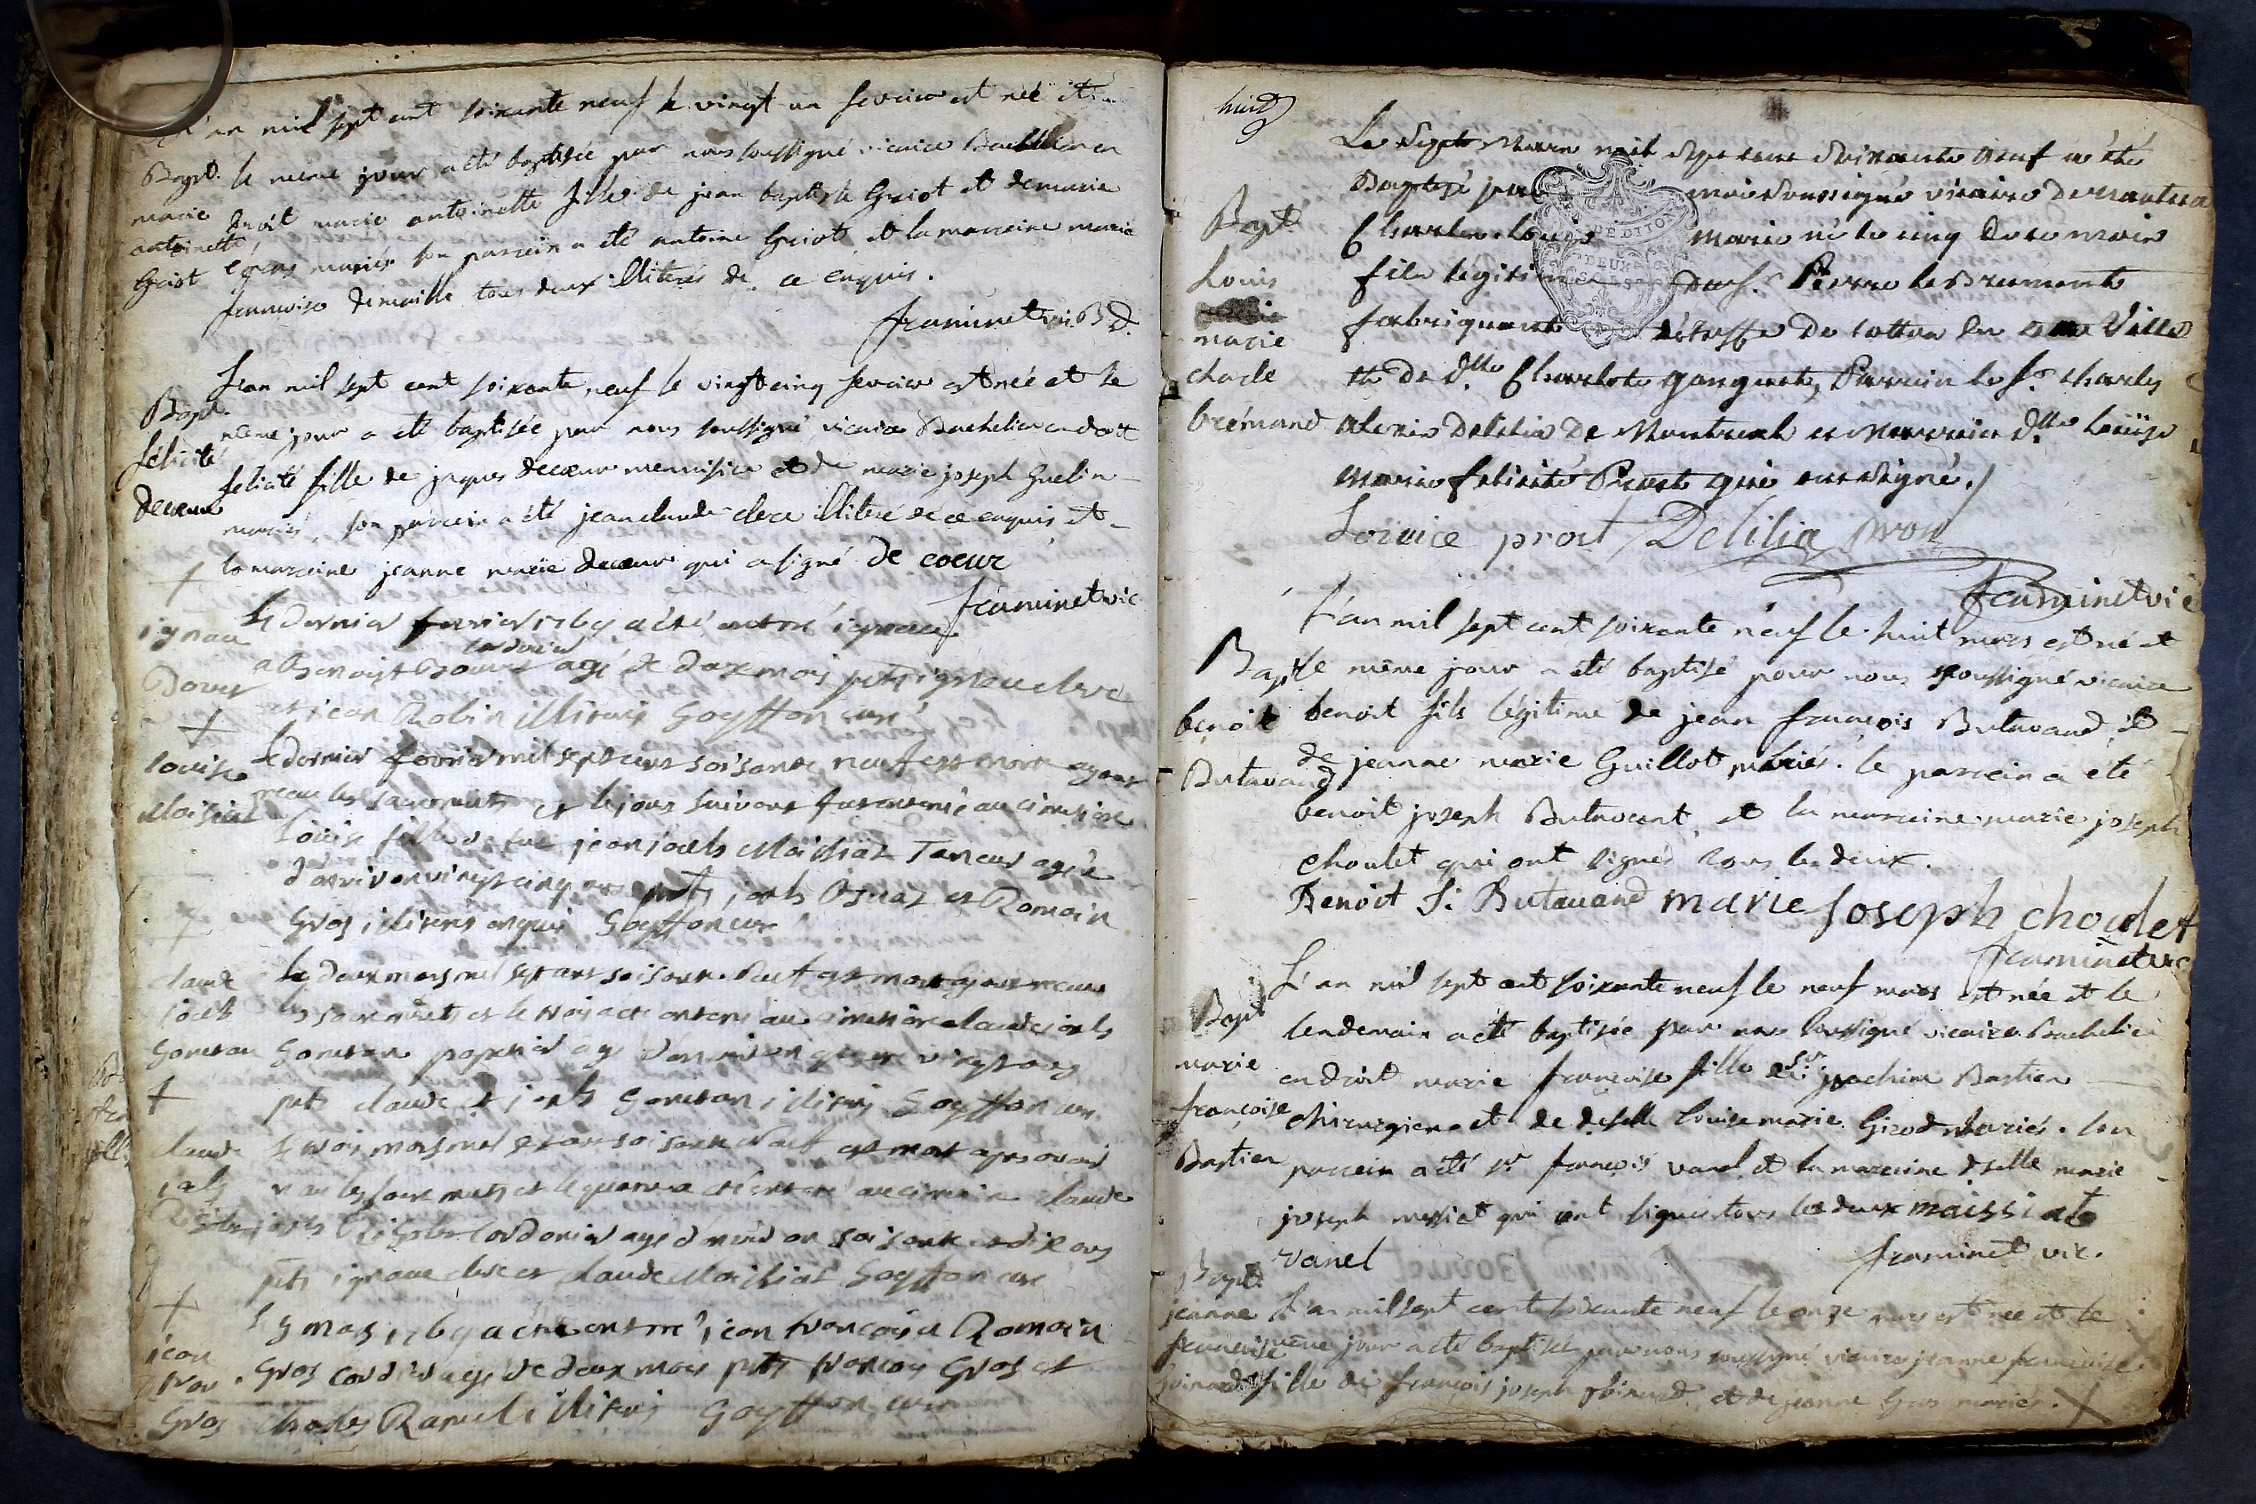 L'an mil sept cent soixante neuf le vingt un fevrier est née et
Bapt. le meme jour a été baptisée par nous soussigné vicaire Bachelier en
marie droit marie antoinette fille de jean baptiste Griot et de marie
antoinette
Griot mariés son parrein a été antoine Griot et la marreine marie
francoise demaille tous deux illiterés de ce enquis.
framinet vic. B d.
L'an mil sept cent soixante neuf le vingt cinq fevrier est née et le
Bapt. même jour a été baptisée par nous soussigné vicaire Bachelier en droit
félicité felicité fille de jaques decœur menuisier et de marie joseph Guelin
decœur mariés, son parrein a été jean claude clerc illiteré de ce enquis, et
la marreine jeanne marie decœur qui a signé de coeur
framinet vic
+
ignace le dernier fevrier 1769 a été enterré ignace
cordonier
Bouvet Benoist Bouvet agé de deux mois pnts ignace clerc
et jean Robin illiterés Goyffon curé
+
louise le dernier fevrier mil sept cent soisante neuf est morte ayant
Maissiat receu les sacrements et le jour suivant fut enterrée au cimetière
Louise fille de feu jean joseph Maissiat Taneur agée
d'environ vingt cinq ans pnts joseph et Romain
Gros illiterés enquis Goyffon curé
+
claude le deux mars mil sept cent soisante neuf est mort ayant receu
joseph les sacrements et le trois a été enterré au cimetière claude joseph
Goneran Goneran papetier agé d'environ quatre vingt ans
+ pnts claude et joseph Goneran illiterés Goyffon curé
claude le trois mars mil sept cent soisante neuf est mort apres avoir
joseph receu les sacrements et le quatre a été enterré au cimetière claude
joseph cordonier agé d'environ soisante et dix ans
pnts ignace clerc et claude Maissiat Goyffon curé
+
jean le 5 mars 1769 a été enterré jean françois a Romain
fran Gros cordonier agé de deux mois pnts francois Gros et
Gros Charles Ramel illiterés Goyffon curé
huit
Le Sept Mars mil Sept cent Soixante neuf a été
Baptisé par moi Soussigné vicaire de nantua
Bapt Charles Louis Marie né le cinq de ce mois
Louis fils legitime de Sr. Pierre le Bremant
marie fabriquant d'étoffe de cotton en cette Ville
charle et de dlle Charlote gonguet, Parrain le Sr. charles
brémand Alexis Delilia De Montreal et Marraine dlle Loüise
Marie felicité Prost qui ont Signé./
Loüice prost Delilia
framinet vic
L'an mil sept cent soixante neuf le huit mars est né et
Bapt le même jour a été baptisé par nous soussigné vicaire
benoit benoit fils légitime de jean françois Butavand et
Butavand de jeanne marie Guillot mariés. le parrein a été
benoit joseph Butavant, et la marreine marie joseph
choulet qui ont signés tous les deux.
Benoit J: Butavand marie Joseph choulet
framinet vic
L'an mil sept cent soixante neuf le neuf mars est née et le
Bapt lendemain a été baptisée par nous soussigné vicaire Bachelier
marie en droit marie francoise fille de sr. joachim Bastien
françoise chirurgien et de dselle louise marie Girod mariés. son
Bastien parrein a été sr françois vanel et la marreine dselle marie
joseph messiat qui ont signés tous les deux maissiat
vanel framinet vic.
Bapt
jeanne L'an mil sept cent soixante neuf le onze mars est née et le
francoise même jour a été baptisée par nous soussigné vicaire jeanne francoise
joinard fille de françois joseph joinard et de jeanne Gros mariés. +